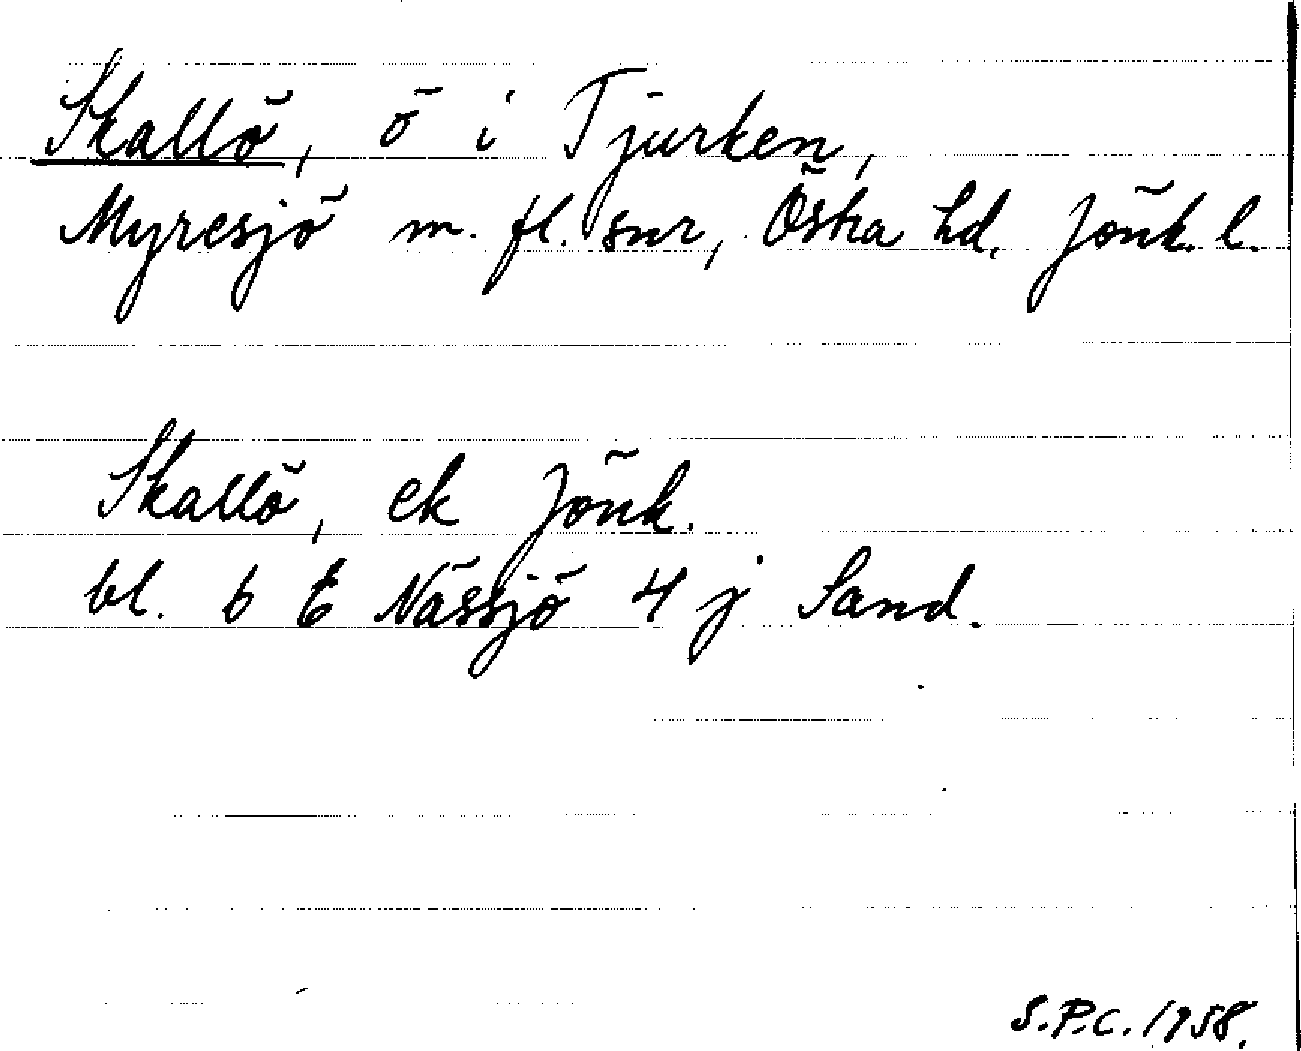 Skallö, ö i Tjurken,
Myresjö m. fl. snr, Östra hd. Jönk. l.
Skallö, ek Jönk.
bl. 6 E Nässjö 4 j Sand.
S.P.C. 1958.